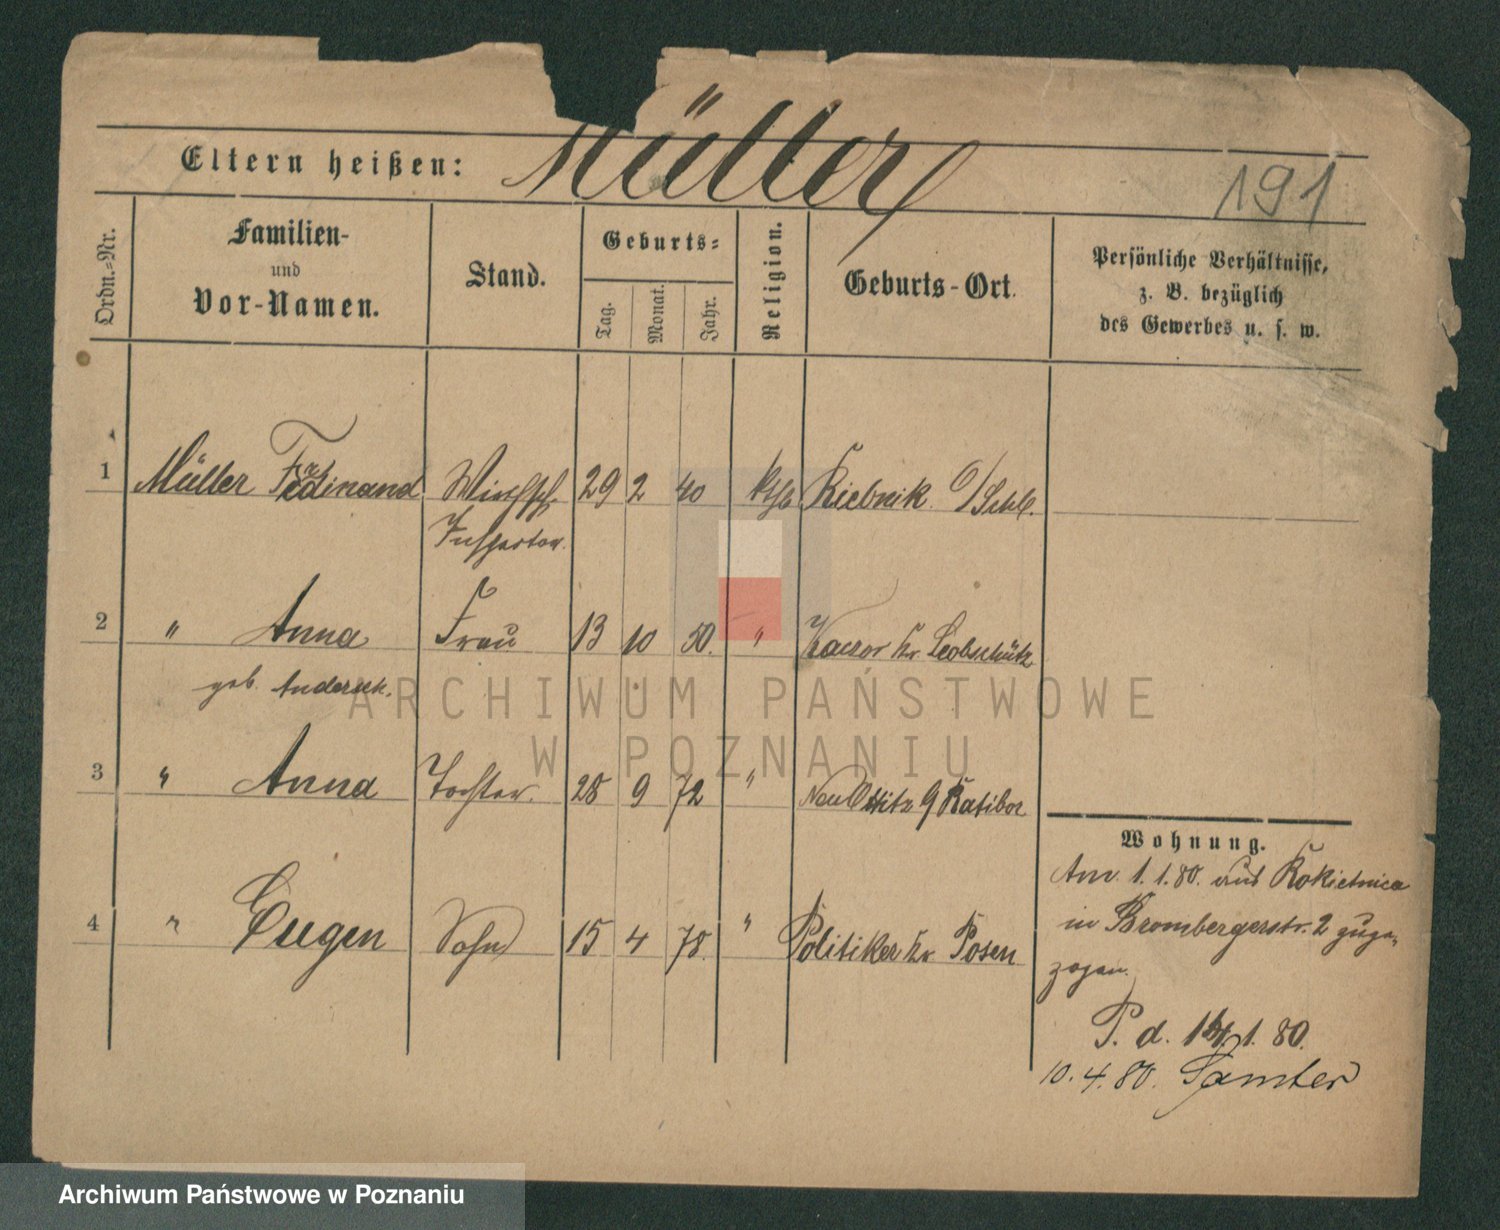 Müller
Eltern heißen:
191
Ordn.=Nr.
Familien-
und
Vor-Namen.
Stand.
Geburts=
Tag.
Monat.
Jahr.
Religion.
Geburts-Ort.
Persönliche Verhältnisse,
z. B. bezüglich
des Gewerbes u. s. w.
1 Müller Ferdinand Wirthsch. 29 2 40 kth Riebnik O/Schl.
Inspector.
2 " Anna Frau 13 10 50. " Kaczor Kr. Leobschütz
geb. Anderseck.
3 " Anna Tochter. 28 9 72 " Neu Ratibor
4 " Eugen Sohn 15 4 78. " Politiker Kr. Posen
Wohnung.
Am. 1.1.80. aus Rokietnica
in Brombergerstr. 2 zuge-
zogen.
P. d. 1. 80.
10.4.80. Samter
ARCHIWUM PAŃSTWOWE
W POZNANIU
Archiwum Państwowe w Poznaniu